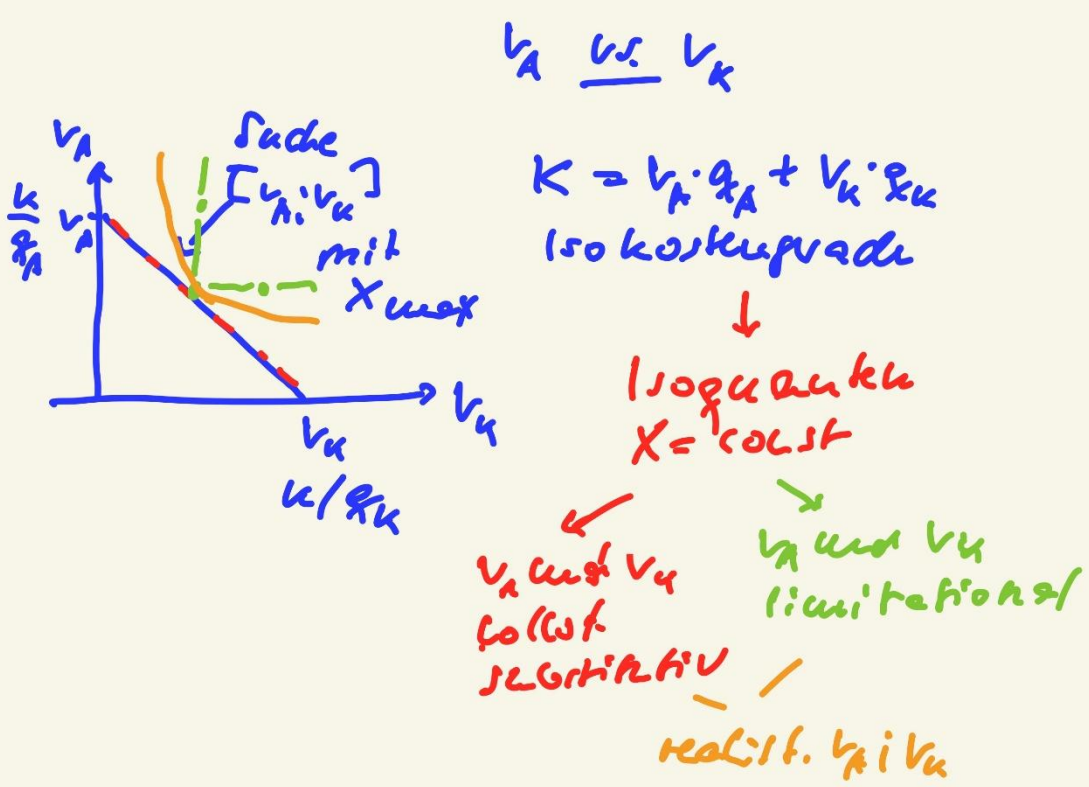 V_A vs. V_K
V_A
Suche
[V_A; V_K]
mit
X max
K/q_A
V_A
V_K
V_K
K/q_K
K = V_A · q_A + V_K · q_K
Isokostengrade
Isoquanten
X = const
V_A und V_K
vollst.
substitutiv
V_A und V_K
limitational
realist. V_A; V_K